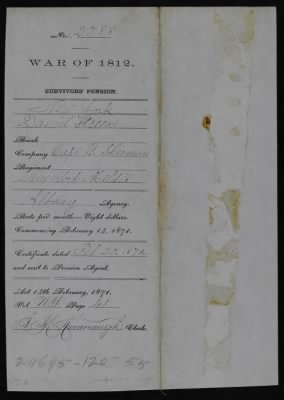 No. 2,788
WAR OF 1812.
SURVIVORS' PENSION.
New York
Daniel
Rank
Company Capt. T. Sherman
Regiment
New York Militia
Albany Agency.
Rate per month—Eight dollars.
Commencing February 14, 1871.
Certificate dated Feb 20, 1872
and sent to Pension Agent.
Act 14th February, 1871.
Vol. N.Y. Page 41
Clerk.
24695-120 55